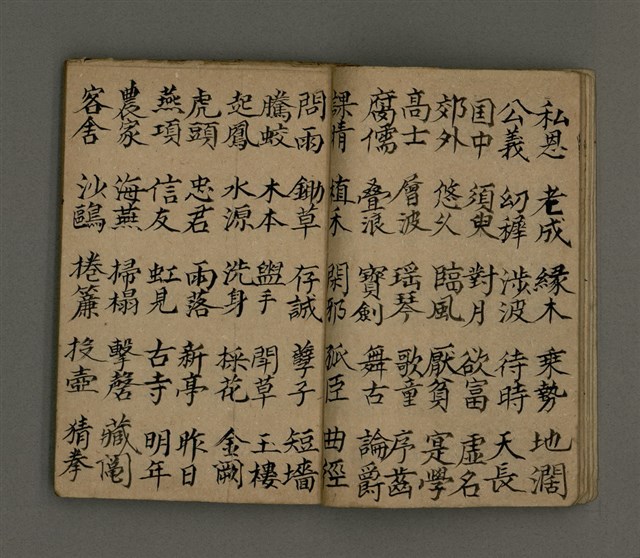 私恩 老成 緣木 乗勢 地濶
公義 幼穉 涉波 待時 天長
囯中 須臾 對月 欲富 虛名
郊外 悠久 臨風 厭貧 寔學
高士 層波 瑶琴 歌童 序齒
腐儒 叠浪 寶劍 舞古 論爵
課情 植禾 閑邪 孤臣 曲徑
問雨 鋤草 存誠 孽子 短墻
騰蛟 木本 盥手 閗草 玉樓
起鳳 水源 洗身 採花 金闕
虎頭 忠君 雨落 新亭 昨日
燕項 信友 虹見 古寺 明年
農家 海燕 掃榻 擊磬 藏鬮
客舍 沙鷗 捲簾 投壺 猜拳